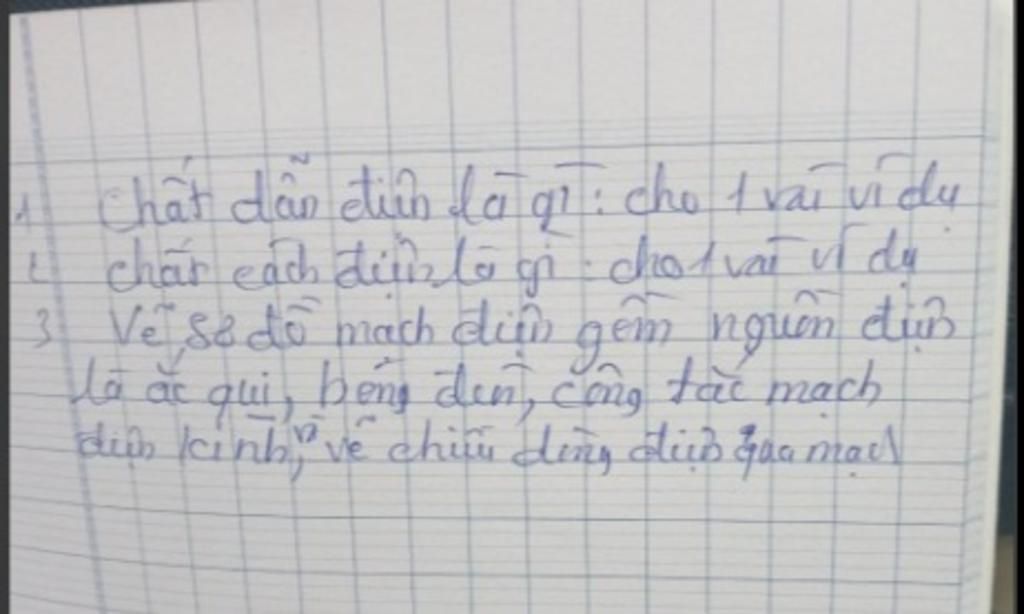 1 Chất dẫn điện là gì: cho 1 vài ví dụ
2 chất cách điện là gì: cho 1 vài ví dụ
3 Vẽ sơ đồ mạch điện gồm nguồn điện
là ắc qui, bóng đèn, công tắc mạch
điện kính, vẽ chiều dòng điện qua mạch